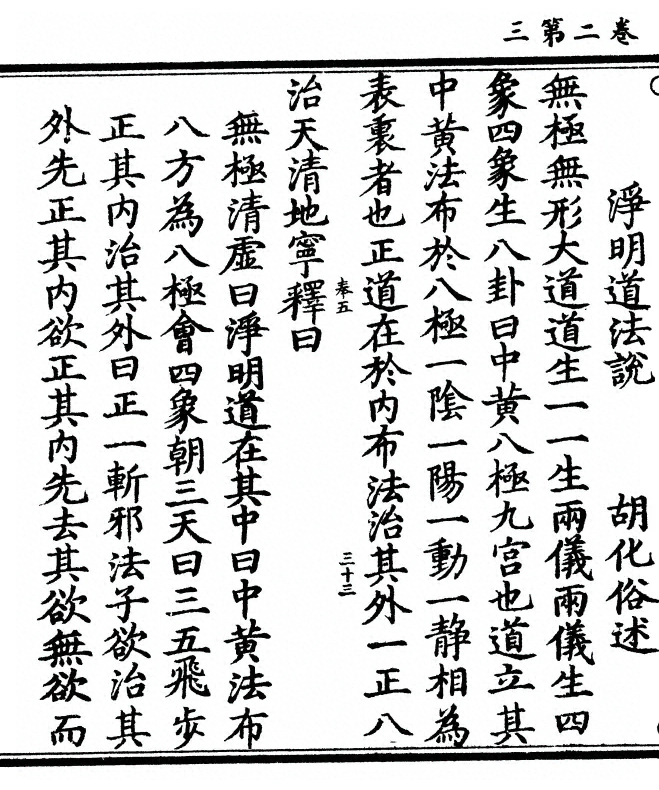 三第二卷
淨明道法說 胡化俗述
無極無形大道道生一一生兩儀兩儀生四
象四象生八卦曰中黃八極九宮也道立其
中黃法布於八極一陰一陽一動一静相為
表裏者也正道在於内布法治其外一正八
奉五 三十三
治天清地寧釋曰
無極清虛曰淨明道在其中曰中黃法布
八方為八極會四象朝三天曰三五飛步
正其内治其外曰正一斬邪法子欲治其
外先正其内欲正其内先去其欲無欲而